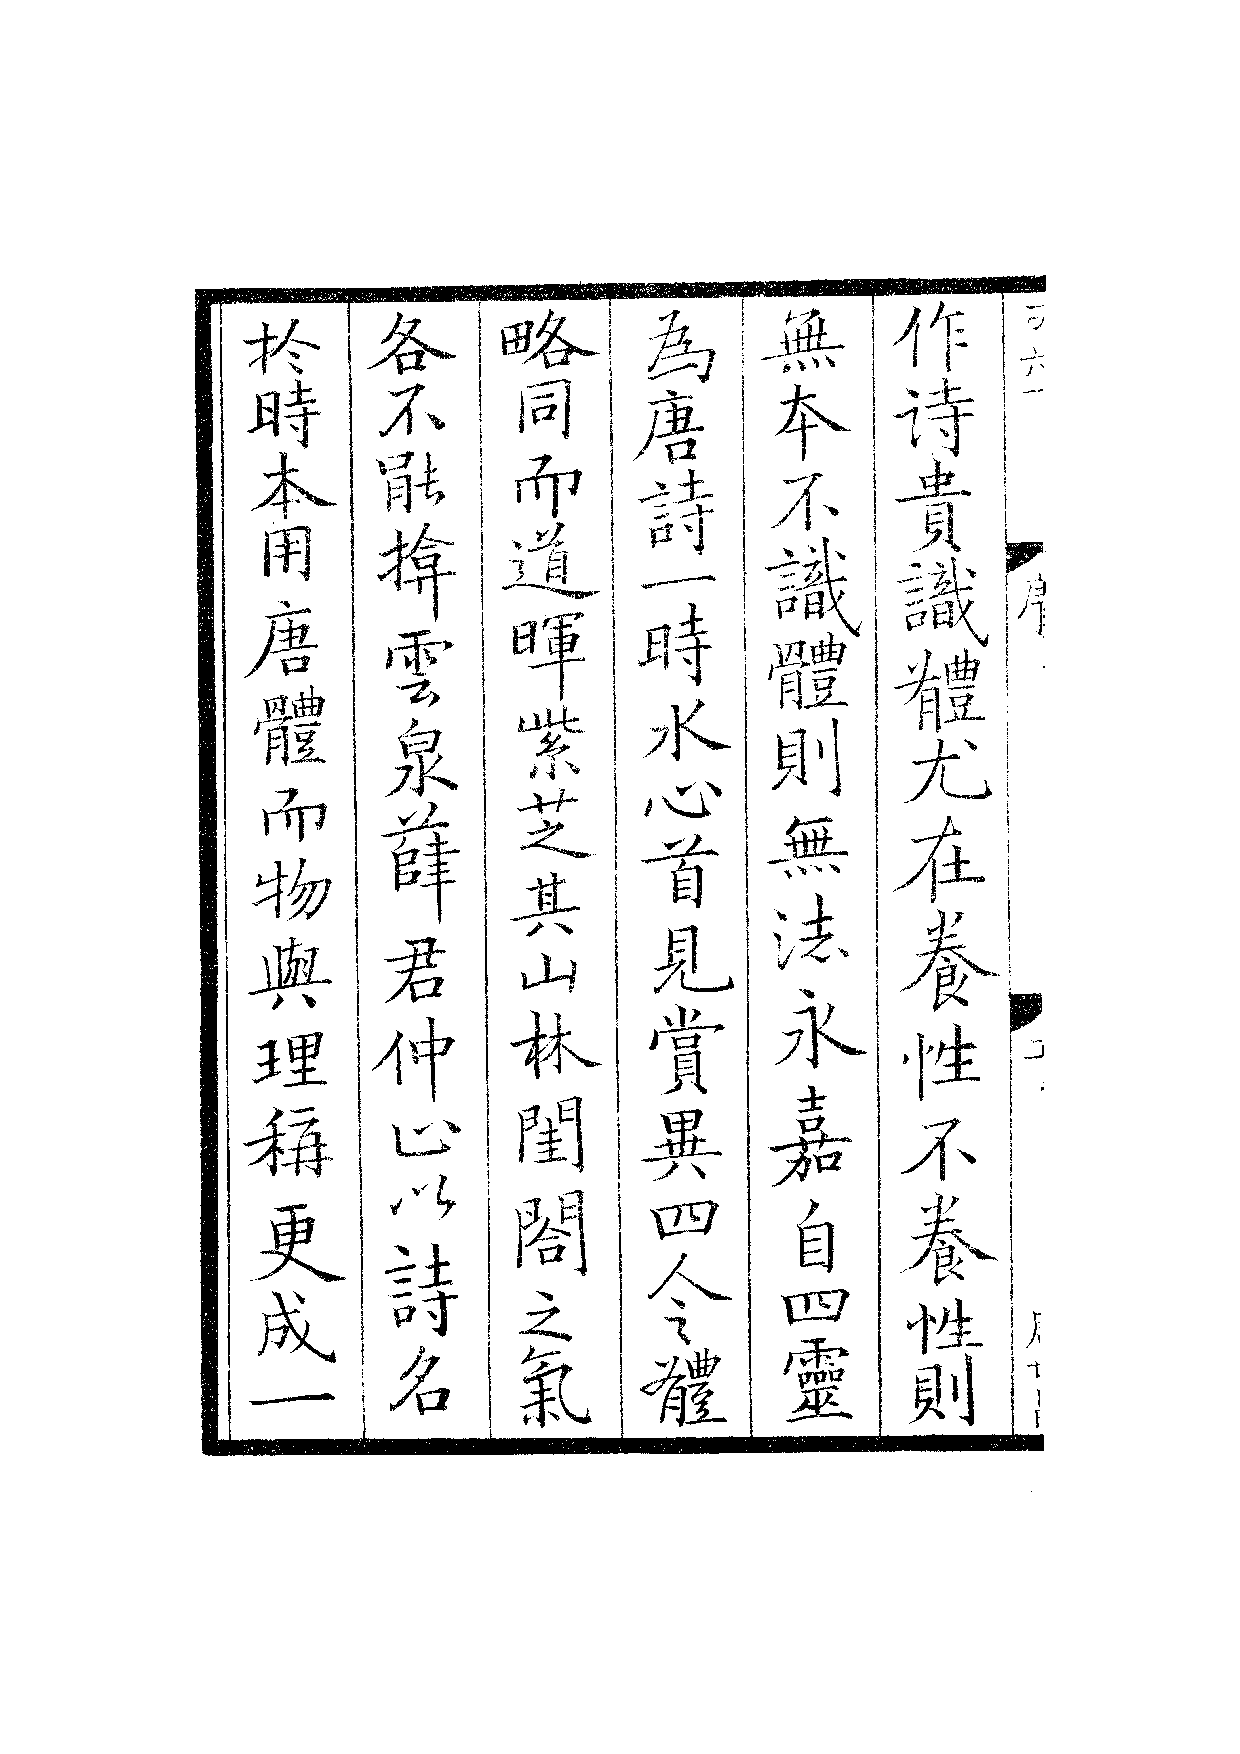 作诗貴識體尤在養性不養性則
無本不識體則無法永嘉自四靈
為唐詩一時水心首見賞異四人之體
略同而道暉紫芝其山林閨閤之氣
各不能揜雲泉薛君仲止以詩名
於時本用唐體而物與理稱更成一